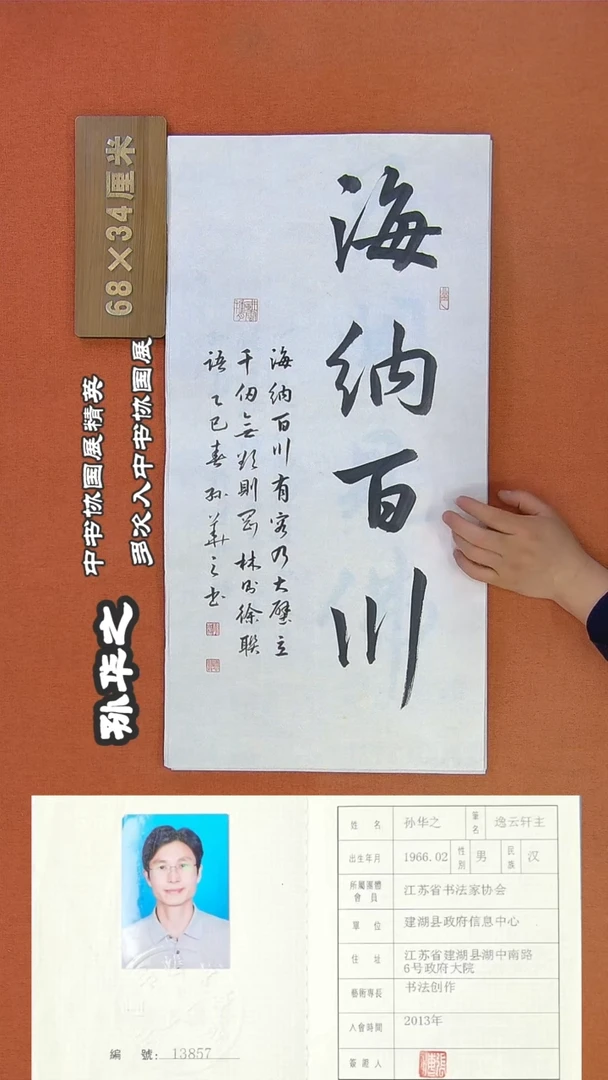 68×34厘米
多次入中书协国展
中书协国展精英
孙华之
海纳百川
海纳百川有容乃大壁立
千仞無欲則剛林則徐聯
语乙巳春孙華之书
姓名 孙华之 筆名 逸云轩主
出生年月 1966.02 性别 男 民族 汉
所屬團體會員 江苏省书法家协会
單位 建湖县政府信息中心
住址 江苏省建湖县湖中南路
6号政府大院
藝術專長 书法创作
入會時間 2013年
簽證人
編號：13857